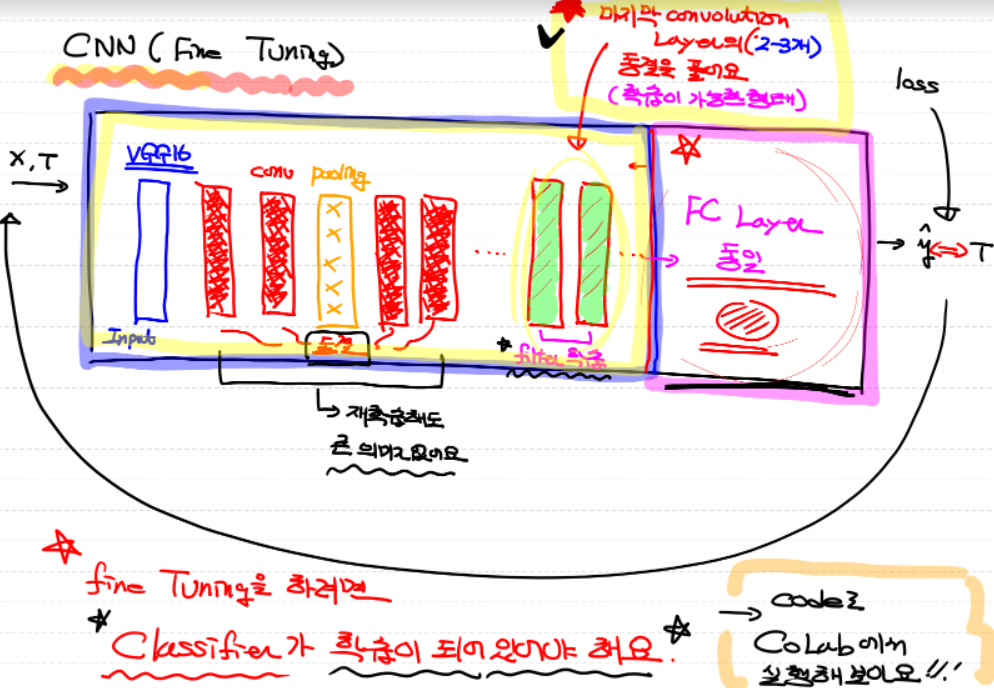 CNN (Fine Tuning)
마지막 convolution
Layer의 (2-3개)
동결을 풀어요
(학습이 가능한 형태)
loss
X, T
VGG16
conv
pooling
FC Layer
동일
ŷ ⇔ T
Input
동결
* filter 학습
재학습해도
큰 의미가 없어요
fine Tuning을 하려면
Classifier가 학습이 되어 있어야 해요.
→ code로
CoLab에서
실행해 보아요!!